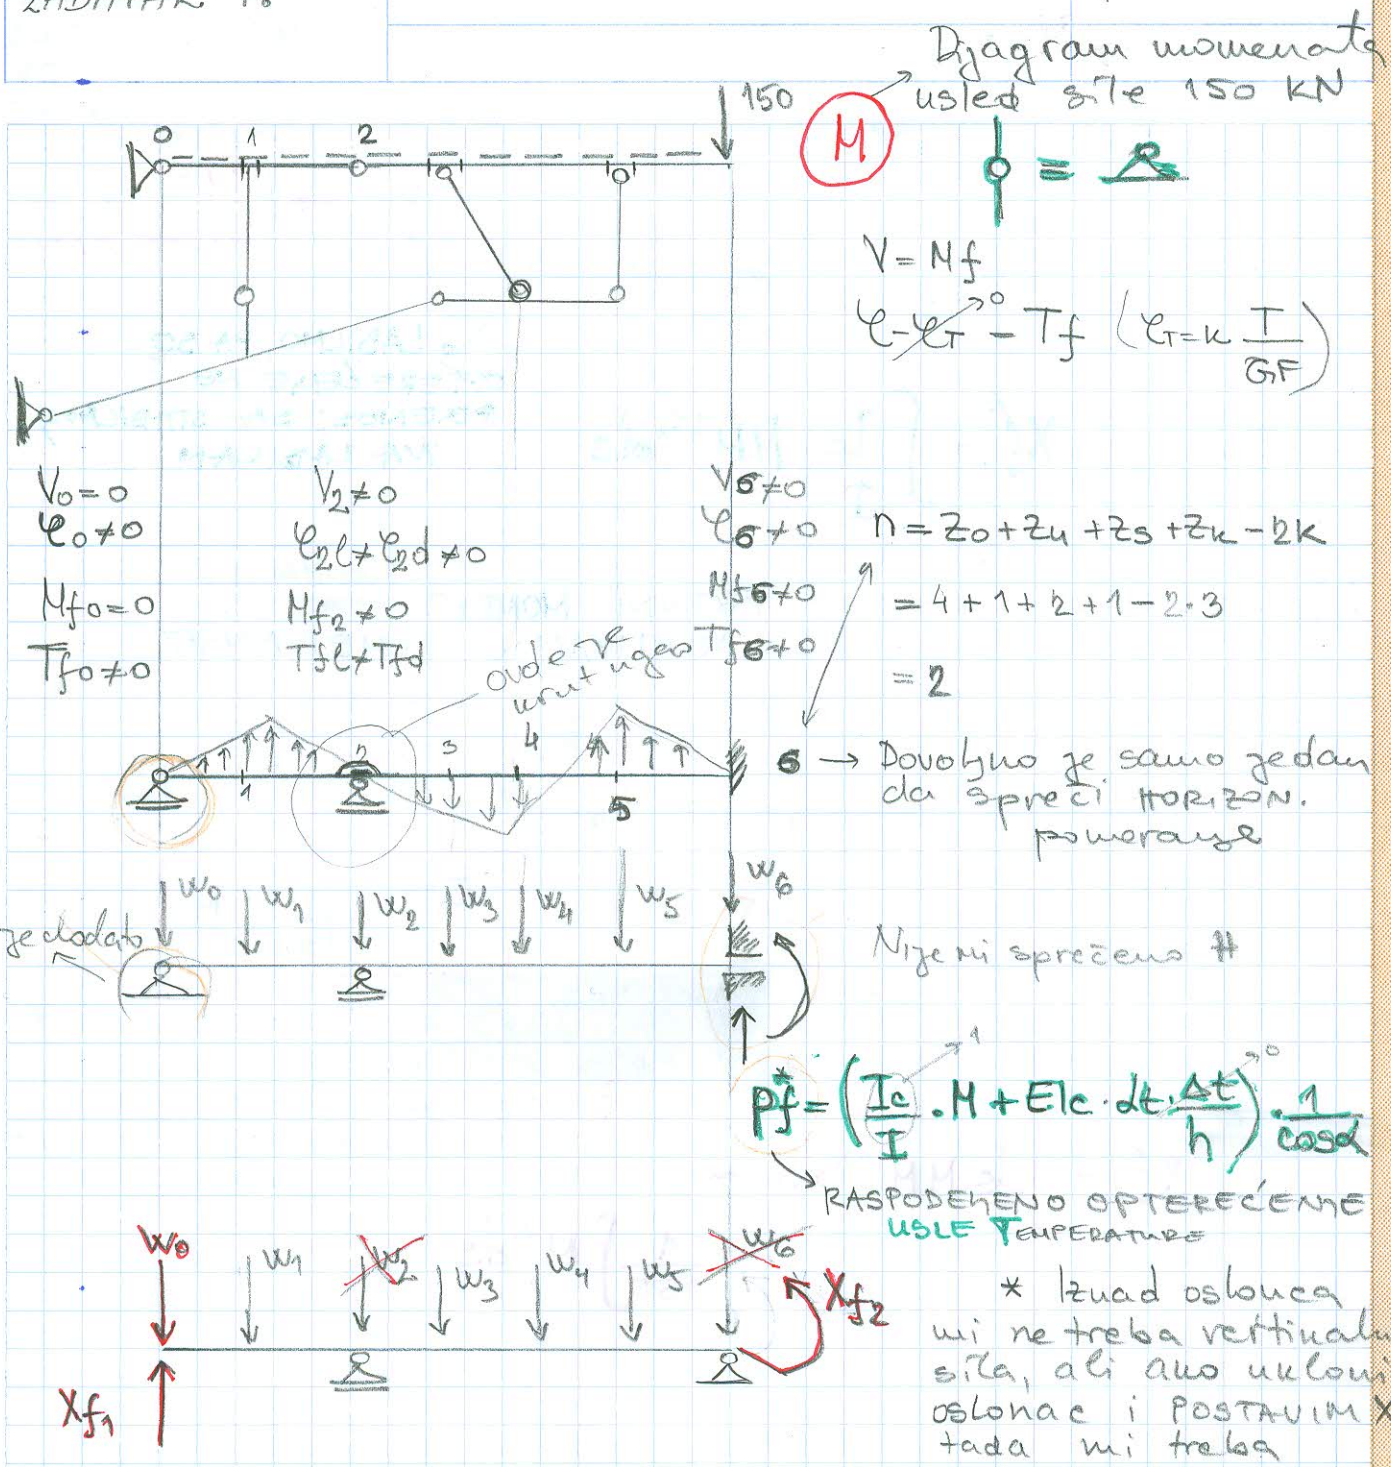 ZADATAK
Dijagram momenata
usled sile 150 KN
150
M
0 1 2
=
V = Mf
φ - φT - Tf (φT = k T/GF)
0
V0 = 0
φ0 ≠ 0
Mf0 = 0
Tf0 ≠ 0
V2 ≠ 0
φ2l ≠ φ2d ≠ 0
Mf2 ≠ 0
Tfl ≠ Tfd
V6 ≠ 0
φ6 ≠ 0
Mf6 ≠ 0
Tf6 ≠ 0
n = Zo + Zu + Zs + Zk - 2K
= 4 + 1 + 2 + 1 - 2·3
= 2
ovde je
krut ugao
1 2 3 4 5
6 → Dovoljno je samo jedan
da spreči HORIZON.
pomeranje
W0 W1 W2 W3 W4 W5 W6
je dodato
Nije mi sprečeno H
Pf* = (Ic/I · M + EIc · αt · Δt/h) · 1/cosα
1
0
RASPODELJENO OPTEREĆENJE
USLE TEMPERATURE
W0 W1 W2 W3 W4 W5 W6
Xf1
Xf2
* Iznad oslonca
mi ne treba vertikaln
sila, ali ako ukloni
oslonac i POSTAVIM X
tada mi treba